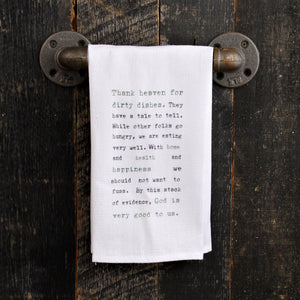 Thank heaven for
dirty dishes. They
have a tale to tell.
While other folks go
hungry, we are eating
very well. With home
and health and
happiness we
should not want to
fuss. By this stack
of evidence, God is
very good to us.